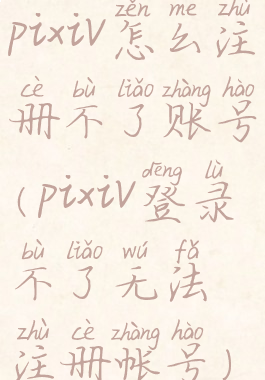 zěn me zhù
pixiv 怎么注
cè bù liǎo zhàng hào
册不了账号
dēng lù
(pixiv 登录
bù liǎo wú fǎ
不了无法
zhù cè zhàng hào
注册帐号)